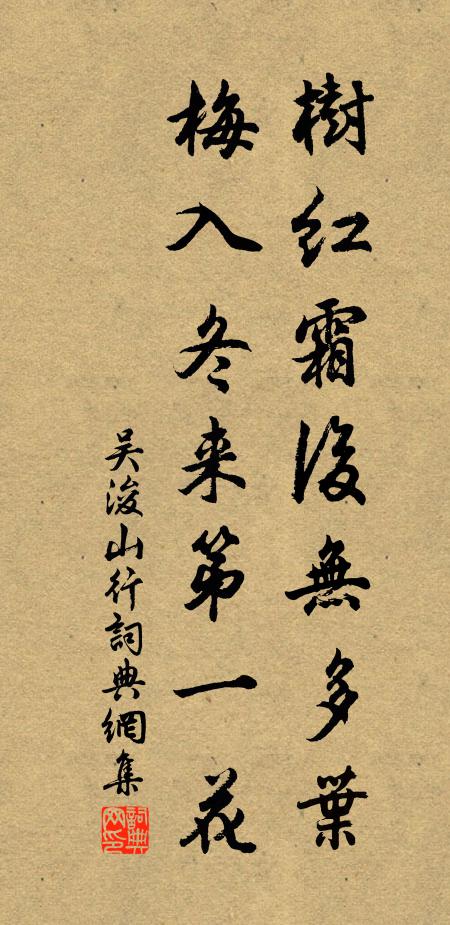 樹紅霜後無多葉
梅入冬来第一花
吴浚山行詞典網集
詞典网印